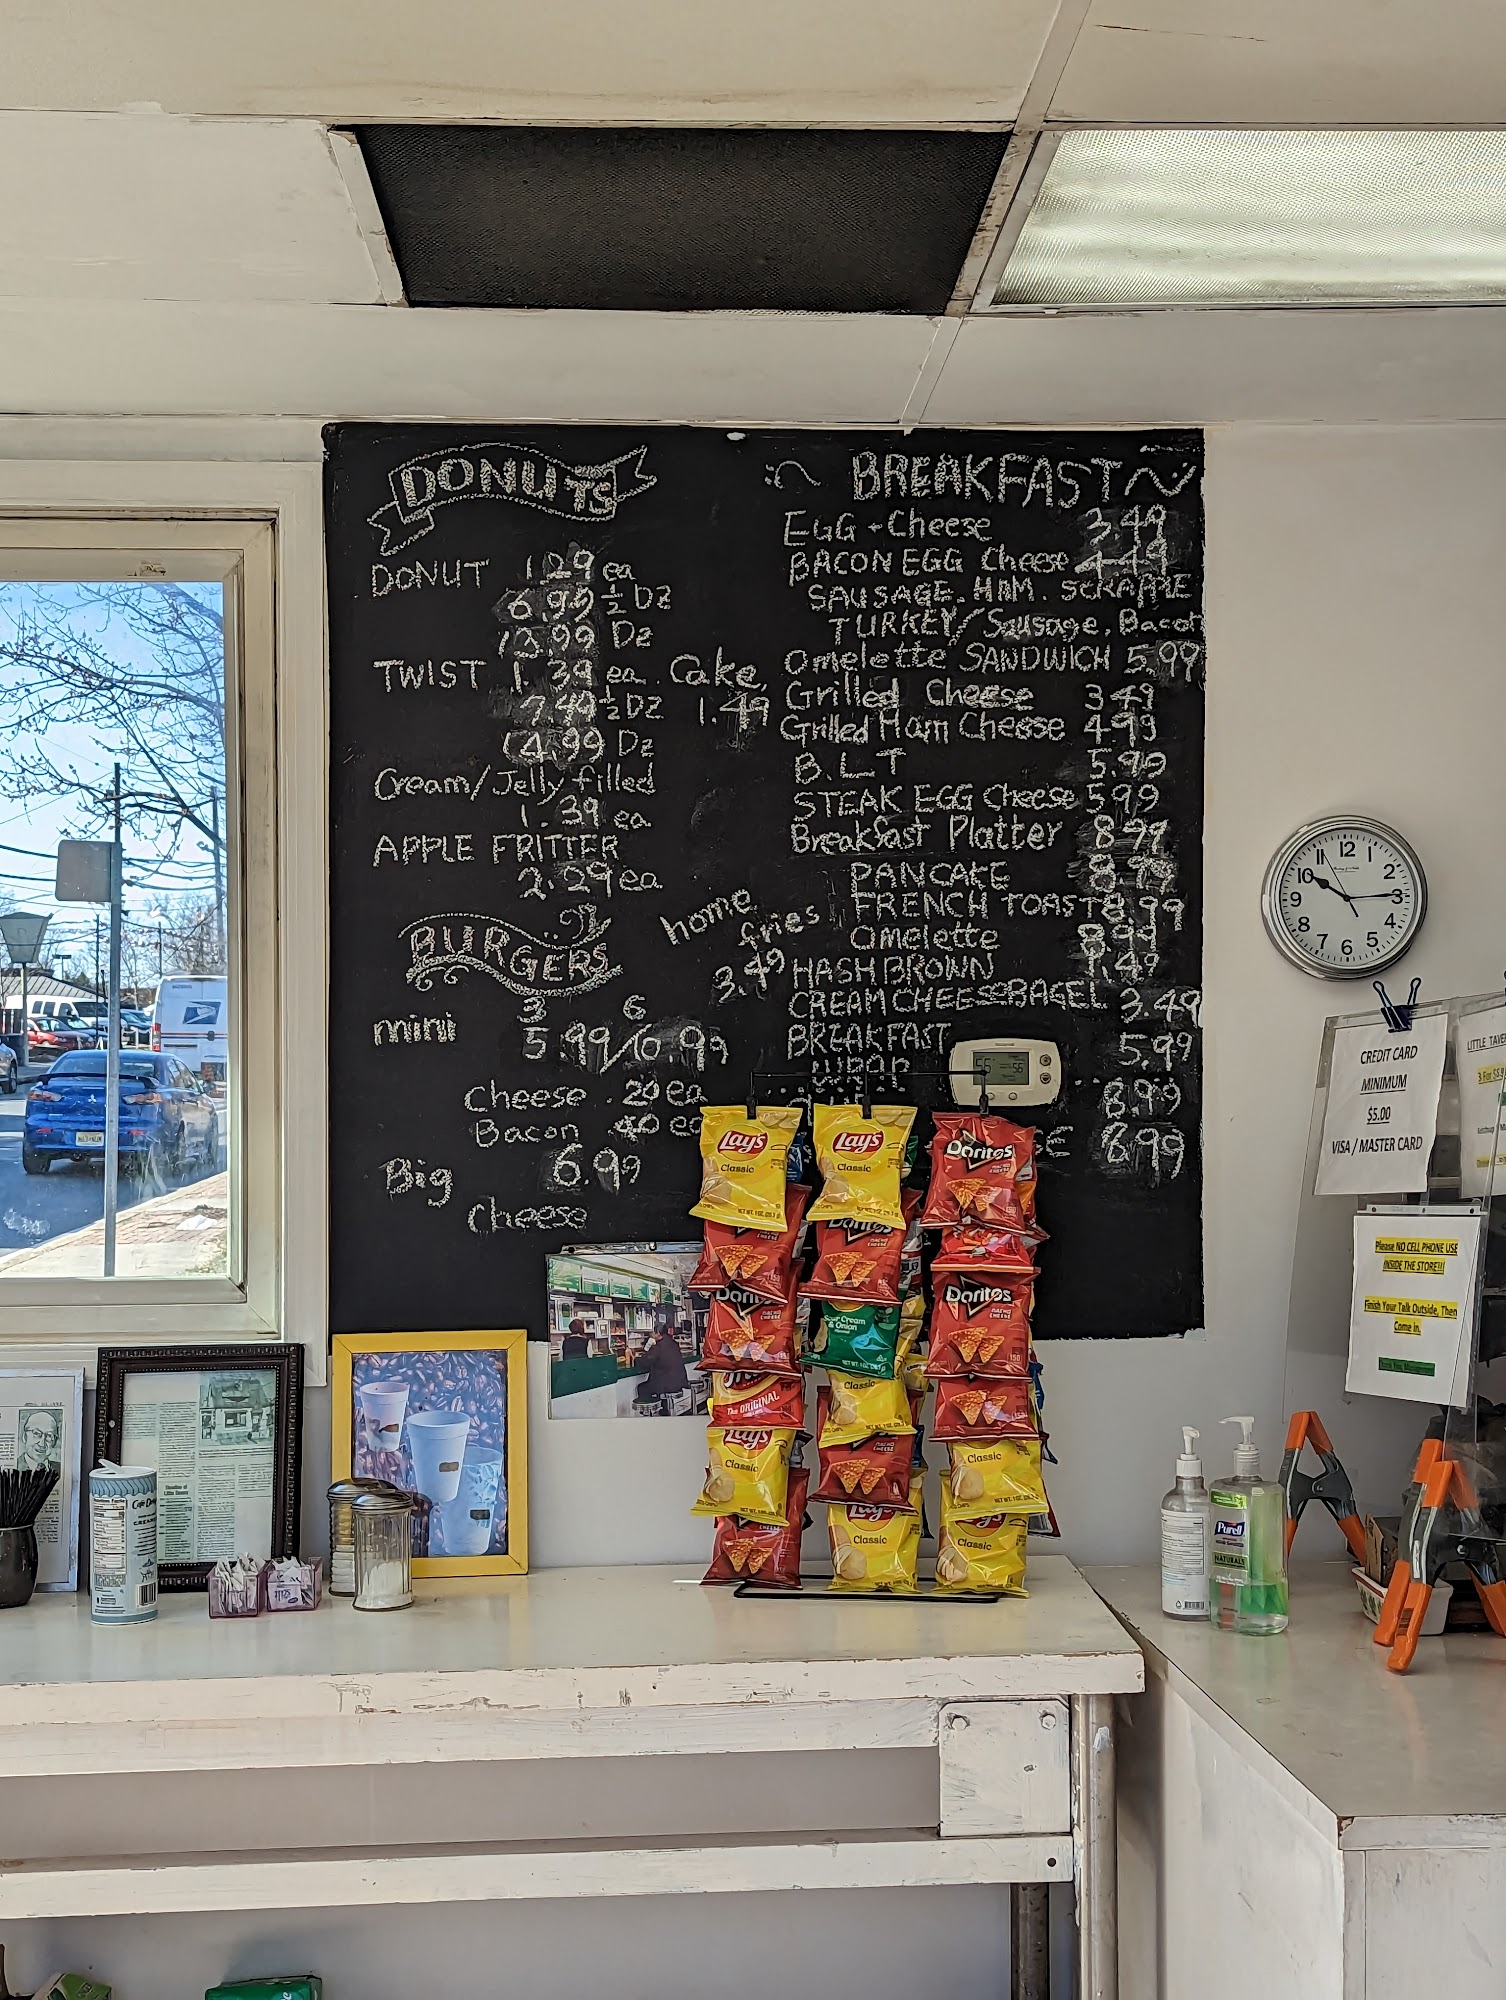 DONUTS
DONUT 1.29 ea
6.99 ½ Dz
13.99 Dz
TWIST 1.39 ea
7.49 ½ DZ
14.99 Dz
Cake
1.49
Cream/Jelly filled
1.39 ea
APPLE FRITTER
2.29 ea
home
fries
3.49
BURGERS
3 6
mini 5.99/10.99
Cheese .20 ea
Bacon .40 ea
Big 6.99
Cheese
BREAKFAST
EGG + Cheese 3.49
BACON EGG Cheese 4.49
SAUSAGE. HAM. SCRAPPLE
TURKEY/Sausage, Bacon
Omelette SANDWICH 5.99
Grilled Cheese 3.49
Grilled Ham Cheese 4.99
B.L.T 5.99
STEAK EGG Cheese 5.99
Breakfast Platter 8.99
PANCAKE 8.99
FRENCH TOAST 8.99
Omelette 8.99
HASHBROWN 1.49
CREAM CHEESE BAGEL 3.49
BREAKFAST 5.99
WRAP
8.99
8.99
12 1 2 3 4 5 6 7 8 9 10 11
CREDIT CARD
MINIMUM
$5.00
VISA / MASTER CARD
Please NO CELL PHONE USE
INSIDE THE STORE!!!
Finish Your Talk Outside, Then
Come in.
Thank You, Management
Lay's
Classic
Lay's
Classic
Doritos
Doritos
Doritos
Doritos
Sour Cream
& Onion
The ORIGINAL
Classic
Lay's
Classic
Classic
Lay's
Classic
Classic
Purell
NATURALS